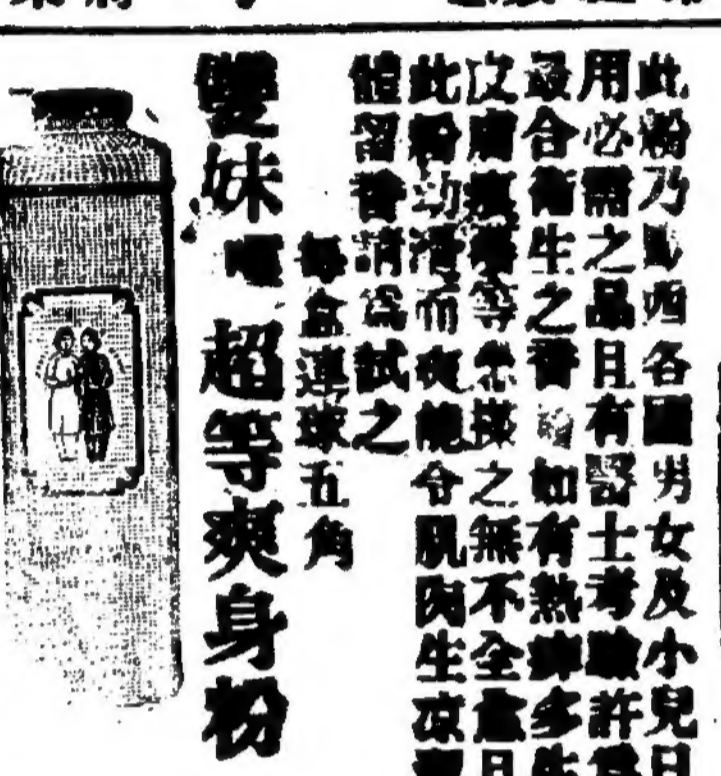 此粉乃 西各國男女及小兒日
用必需之品且有醫士考驗許為
最合衛生之香 如有熱痱多生
皮膚 等 搽之無不全愈且
此粉幼滑而爽能令肌肉生涼
體留香請為試之
每盒連球五角
雙妹嚜超等爽身粉